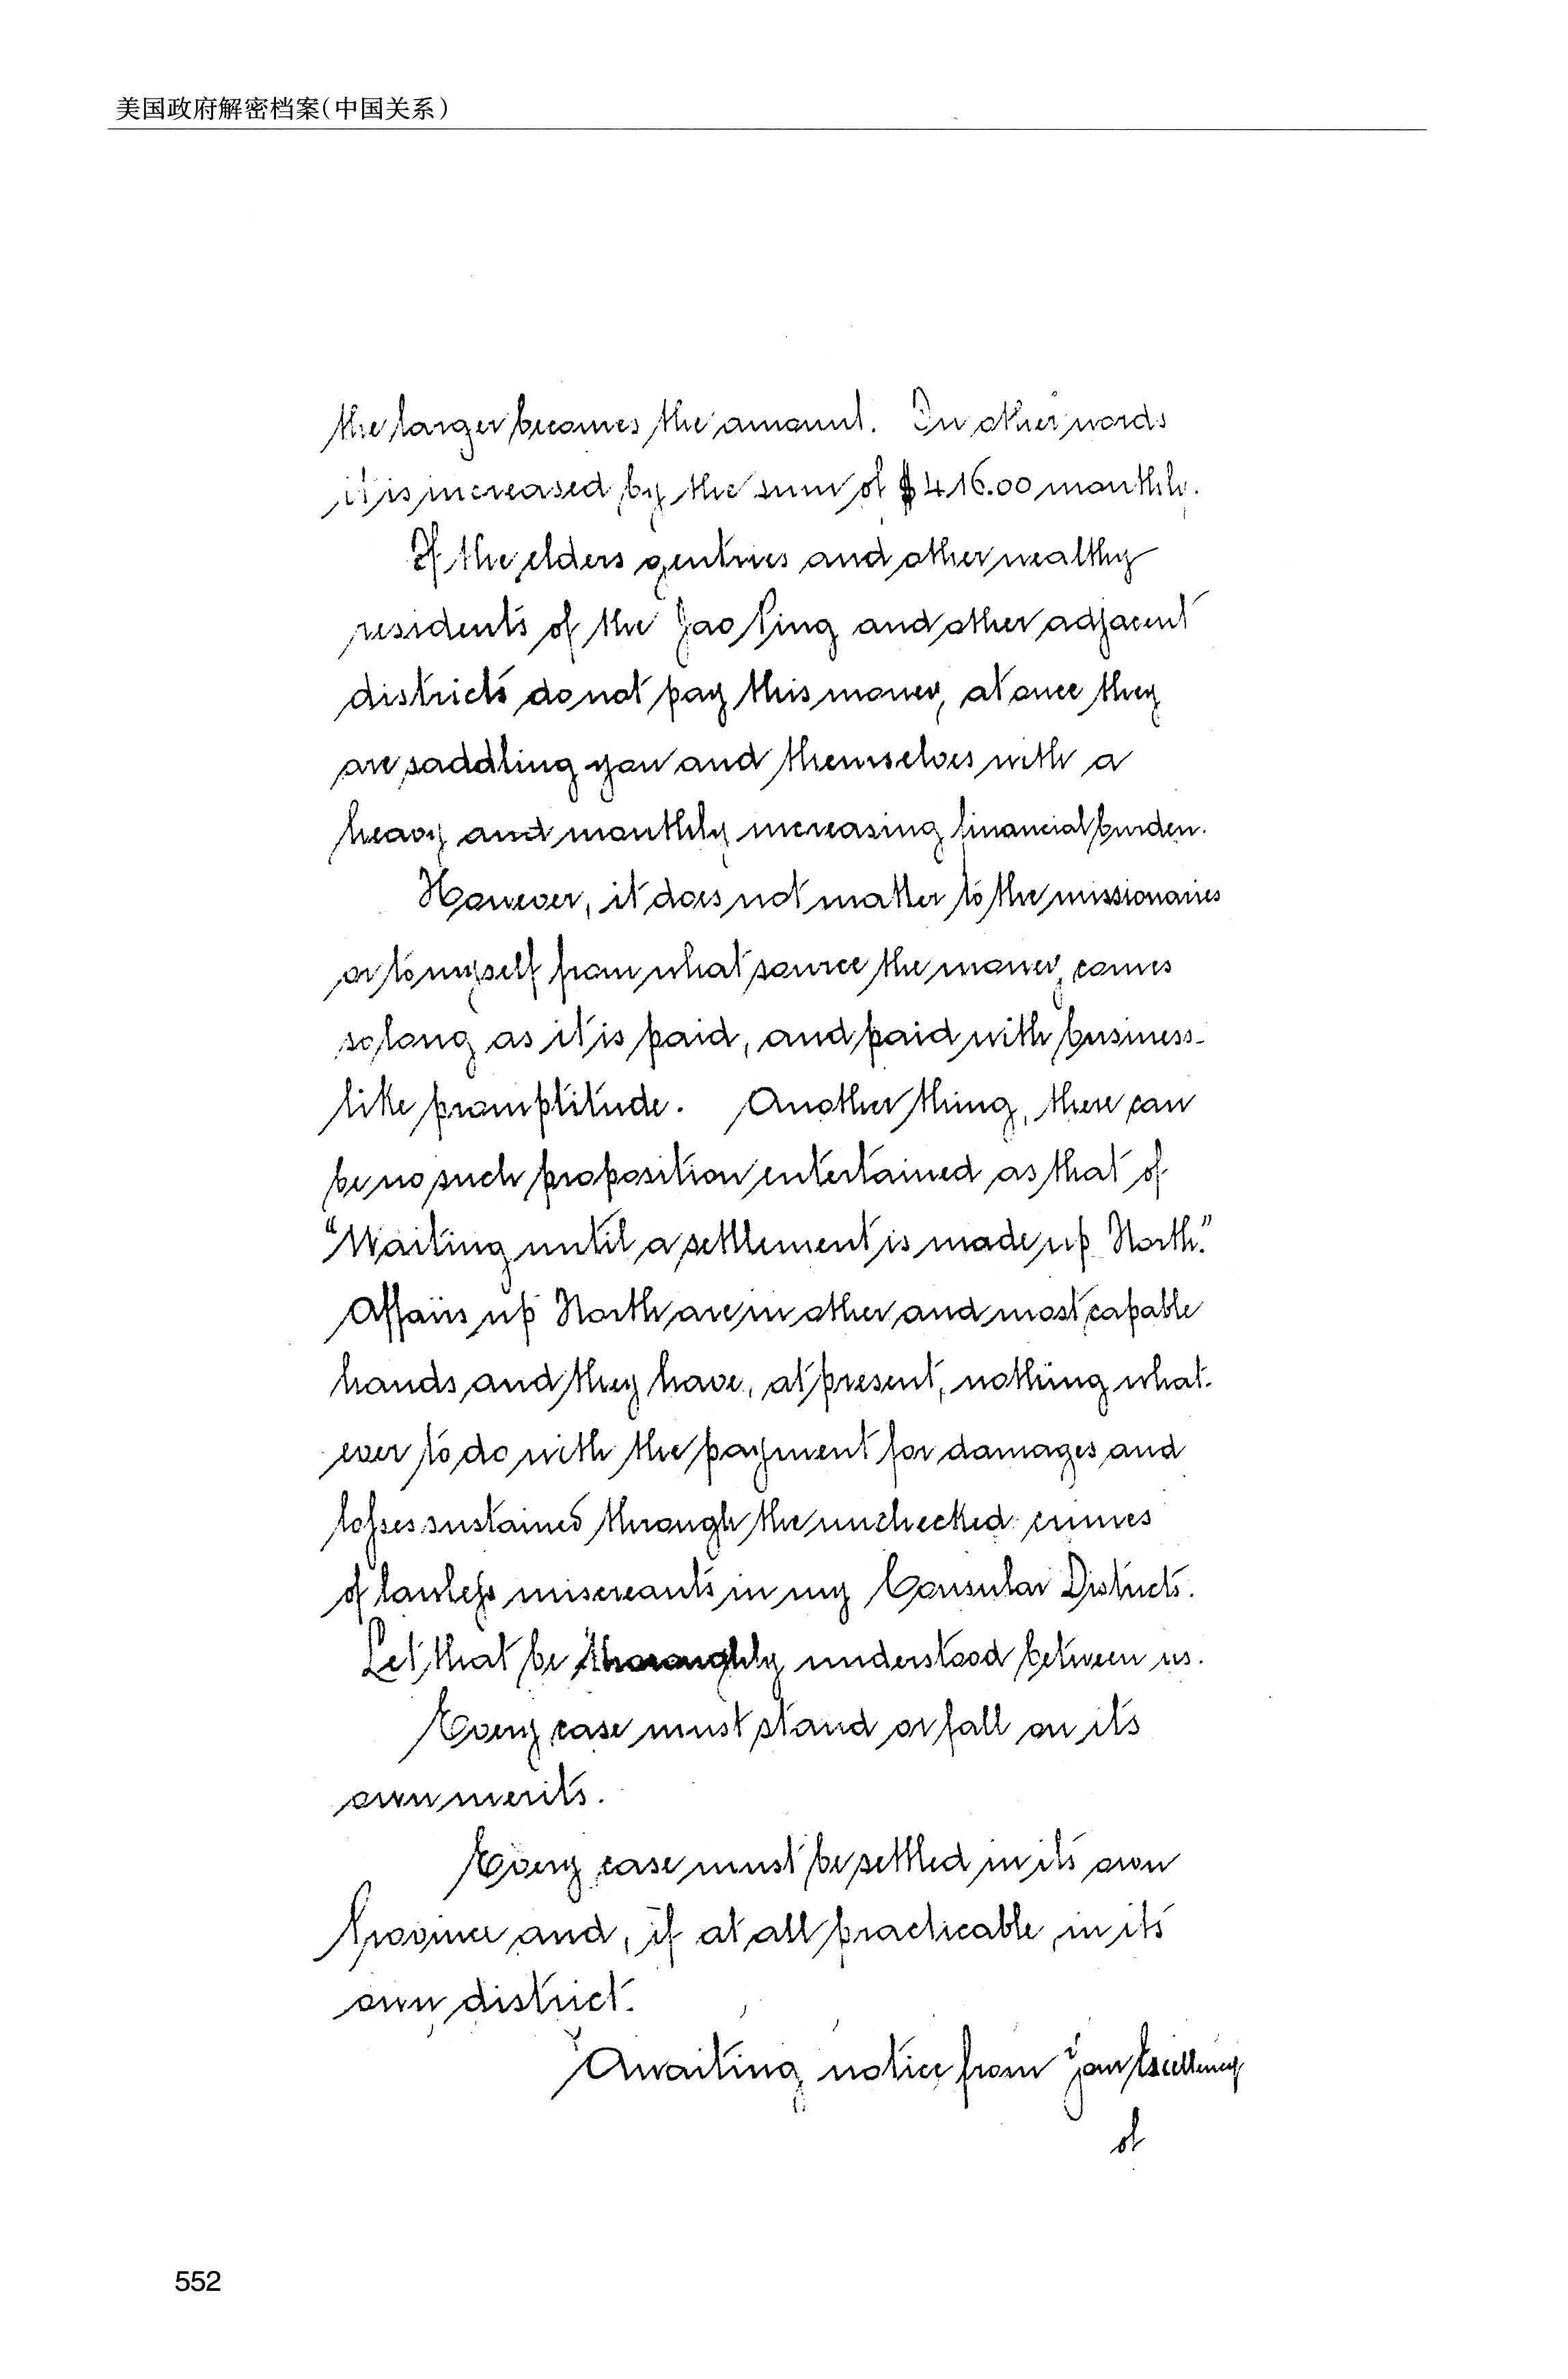 美国政府解密档案(中国关系)
the larger becomes the amount. In other words
it is increased by the sum of $416.00 monthly.
If the elders gentries and other wealthy
residents of the Jao Ping and other adjacent
districts do not pay this money, at once they
are saddling you and themselves with a
heavy and monthly increasing financial burden.
However, it does not matter to the missionaries
or to myself from what source the money comes
so long as it is paid, and paid with business-
like promptitude. Another thing, there can
be no such proposition entertained as that of
"Waiting until a settlement is made up North."
Affairs up North are in other and most capable
hands and they have, at present, nothing what-
ever to do with the payment for damages and
losses sustained through the unchecked crimes
of lawless miscreants in my Consular Districts.
Let that be thoroughly understood between us.
Every case must stand or fall on its
own merits.
Every case must be settled in its own
Province and, if at all practicable, in its
own district.
Awaiting notice from Your Excellency
of
552